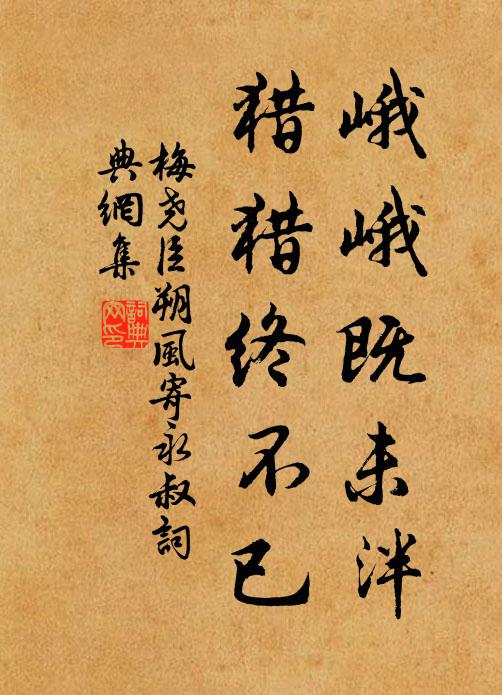 峨峨既未泮
猎猎终不已
梅尧臣朔風寄永叔詞
典網集
詞典
网印